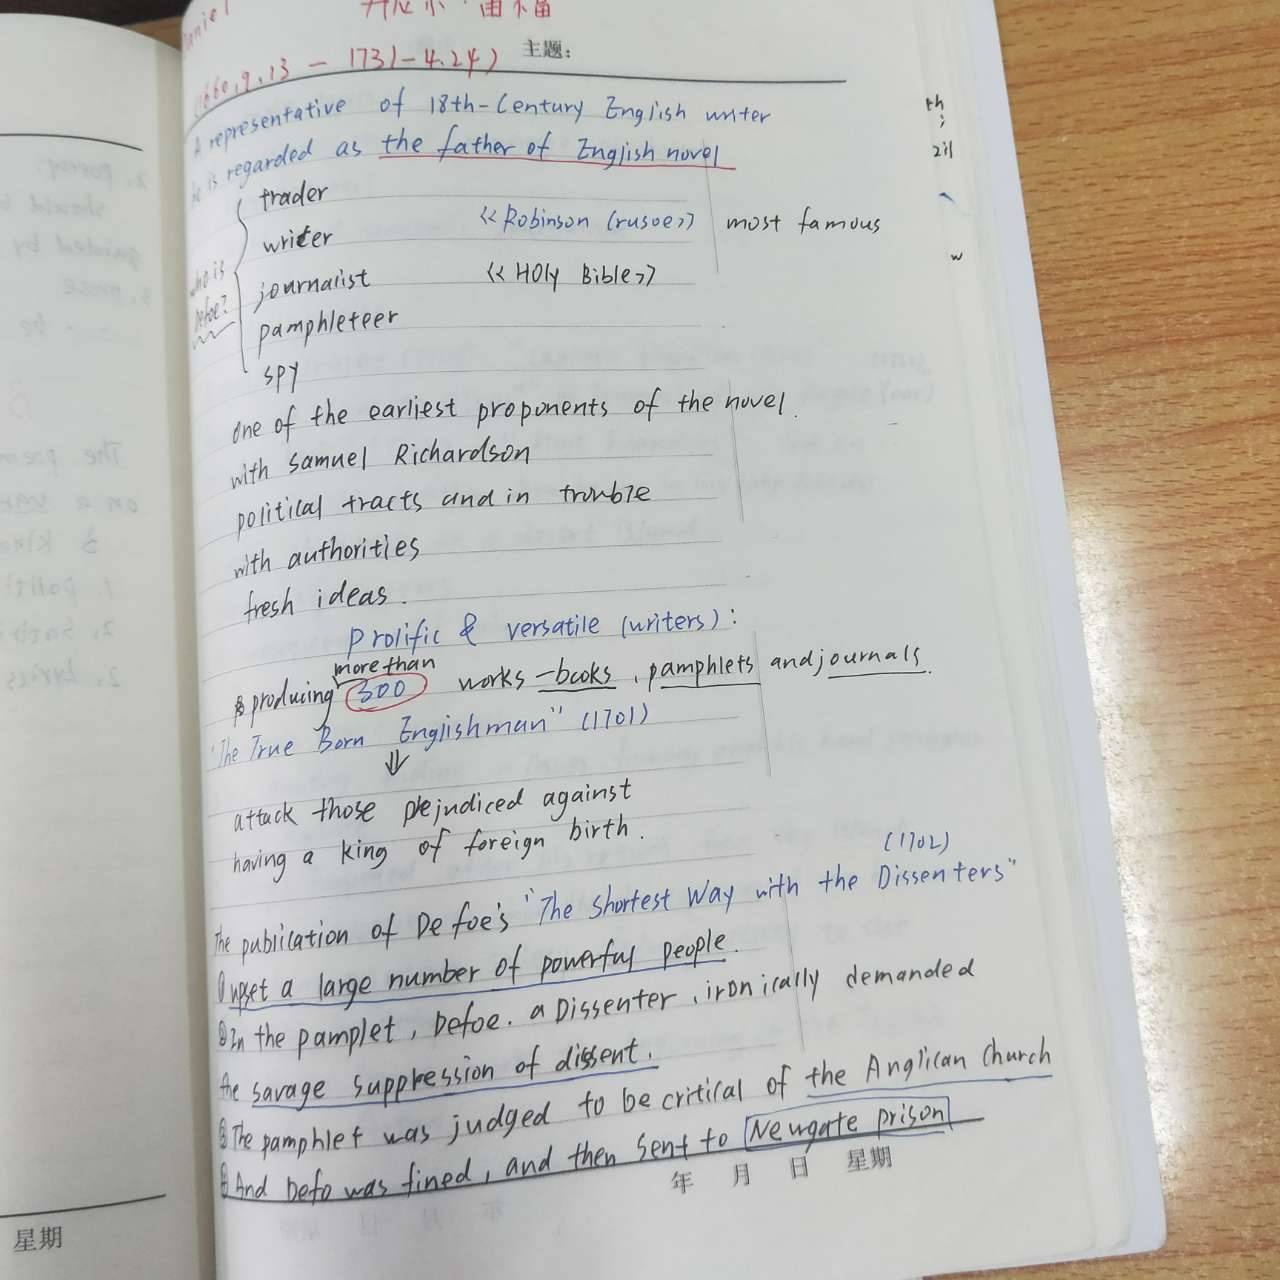 Daniel
(1660.9.13 - 1731-4.24) 主题:
A representative of 18th-Century English writer
he is regarded as the father of English novel
who is Defoe?
trader
writer 《Robinson Crusoe》 most famous
journalist 《HOly Bible》
pamphleteer
spy
one of the earliest proponents of the novel.
with Samuel Richardson
political tracts and in trouble
with authorities
fresh ideas.
Prolific & versatile (writers):
more than
producing 300 works -books, pamphlets and journals.
"The True Born Englishman" (1701)
↓
attack those prejudiced against
having a king of foreign birth.
(1702)
The publication of De foe's "The Shortest Way with the Dissenters"
①upset a large number of powerful people.
②In the pamplet, Defoe. a Dissenter, ironically demanded
the savage suppression of dissent.
③The pamphlet was judged to be critical of the Anglican Church
④And Defo was fined, and then sent to Newgate prison
年 月 日 星期
th
;
2il
w
The poem
星期